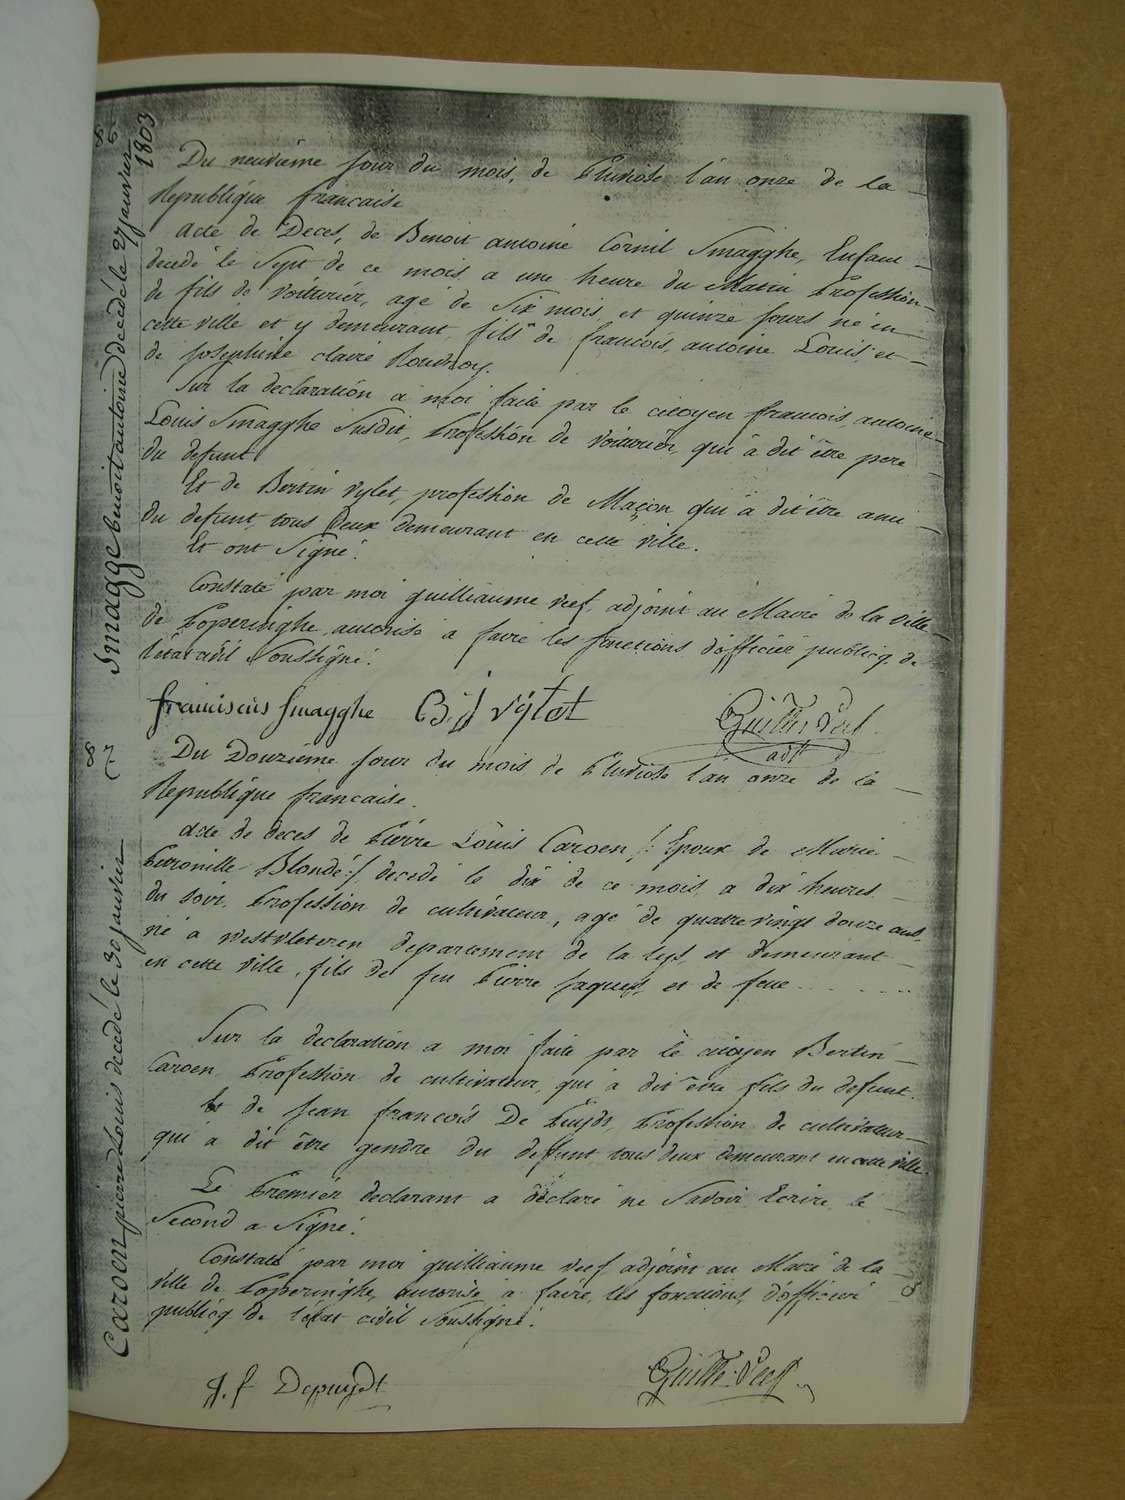 86
1803
Smagge benoit antoine decedé le 27 janvier
Du neuvième jour du mois, de Pluviose l'an onze de la
Republique francaise
acte de Deces, de Benoit antoine Cornil Smagghe, Enfant
decedé le Sept de ce mois a une heure du Matin Profession
de fils de voiturier, agé de Six mois, et quinze jours né en
cette ville et y demeurant, fils de francois, antoine Louis et
de Josephine claire
Sur la déclaration à moi faite par le citoyen francois, antoine
Louis Smagghe Susdit, Profession de voiturier, qui à dit être pere
du defunt
Et de Bertin Vylet, profession de Maçon qui à dit être ami
du defunt, tous deux demeurant en cette ville.
Et ont Signé.
Constaté par moi guilliaume veef, adjoint au Maire de la ville
de Poperinghe, autorisé a faire les fonctions d'officier publicq de
l'état civil Soussigné.
franciscus Smagghe B:J Vÿlet Guille. Veef
adjt
87
Caroen pierre Louis decedé le 30 janvier
Du Douzieme jour du mois de Pluviose l'an onze de la
Republique francaise.
acte de deces de Pierre Louis Caroen /: Epoux de Marie
Petronille Blondé:/ decedé le dix de ce mois, a dix heures
du soir, Profession de cultivateur, agé de quatre vingt douze ans,
né a Westvleteren departement de la Lys, et demeurant
en cette ville, fils de feu Pierre Jaques, et de feue . . . . . . .
Sur la declaration a moi faite par le citoyen Bertin
Caroen Profession de cultivateur, qui à dit être fils du defunt.
Et de Jean francois De Puydt, Profession de cultivateur
qui a dit être gendre du defunt, tous deux demeurant en cette ville.
Le Premier declarant a déclaré ne Savoir Ecrire, le
Second a Signé.
Constaté par moi guilliaume veef adjoint au Maire de la
ville de Poperinghe, autorisé a faire, les fonctions, d'officier
publicq de l'état civil Soussigné.
J. f Depuydt Guille. Veeff